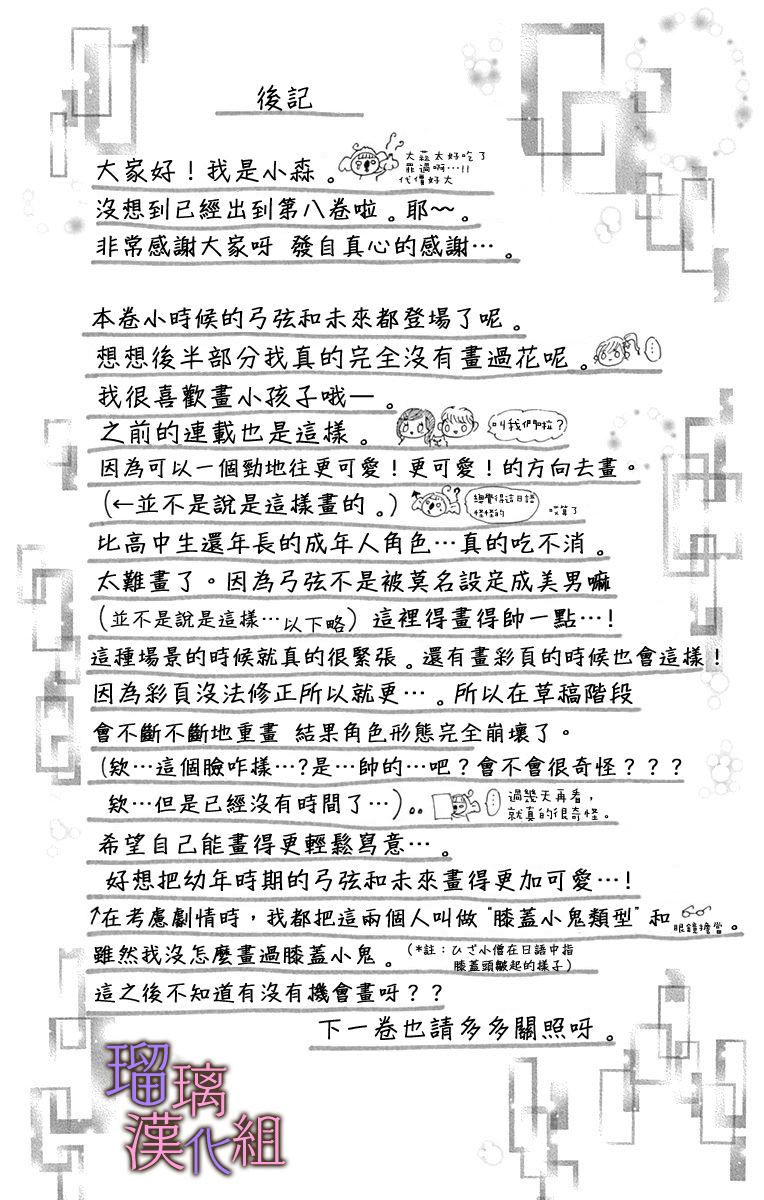 後記
大家好！我是小森。
大蒜太好吃了
罪過啊…!!
代價好大
沒想到已經出到第八卷啦。耶～。
非常感謝大家呀 發自真心的感謝…。
本卷小時候的弓弦和未來都登場了呢。
想想後半部分我真的完全沒有畫過花呢。
…
我很喜歡畫小孩子哦—。
之前的連載也是這樣。
叫我們嗎？
因為可以一個勁地往更可愛！更可愛！的方向去畫。
(←並不是說是這樣畫的。)
總覺得這日語
怪怪的
哎算了
比高中生還年長的成年人角色…真的吃不消。
太難畫了。因為弓弦不是被莫名設定成美男嘛
(並不是說是這樣…以下略) 這裡得畫得帥一點…!
這種場景的時候就真的很緊張。還有畫彩頁的時候也會這樣！
因為彩頁沒法修正所以就更…。所以在草稿階段
會不斷不斷地重畫 結果角色形態完全崩壞了。
(欸…這個臉咋樣…?是…帥的…吧？會不會很奇怪？？？
欸…但是已經沒有時間了…)。。
…
過幾天再看，
就真的很奇怪。
希望自己能畫得更輕鬆寫意…。
好想把幼年時期的弓弦和未來畫得更加可愛…!
↑在考慮劇情時，我都把這兩個人叫做"膝蓋小鬼類型"和眼鏡擔當。
雖然我沒怎麼畫過膝蓋小鬼。
(*註：ひざ小僧在日語中指
膝蓋頭皺起的樣子)
這之後不知道有沒有機會畫呀？？
下一卷也請多多關照呀。
瑠璃
漢化組